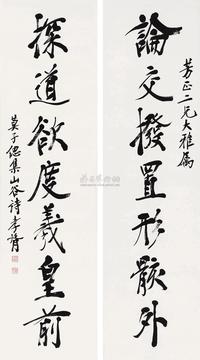 芳正二兄大雅屬
論交撥置形骸外
探道欲度羲皇前
莫子偲集山谷诗孝胥